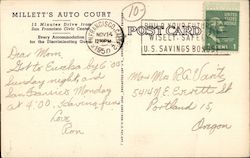 MILLETT'S AUTO COURT
15 Minutes Drive from
San Francisco Civic Center
Every Accommodation
for the Discriminating Guest
SAN FRANCISCO, CALIF.
NOV 14
12 PM
1950
POST CARD
BUILD YOUR FUTURE
WISELY-SAFELY
U.S. SAVINGS BONDS
1 CENT 1
Dear Mom,
Got to Eureka by 6:00
Sunday night, and
San Francisco Monday
at 4:00. Having fun
Love
Ron
Mr + Mrs R G Vant
5414 N E Everett St
Portland 15,
Oregon
10-